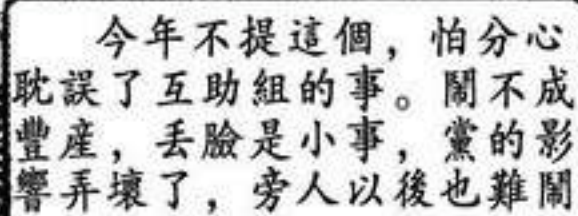 今年不提這個，怕分心
耽誤了互助組的事。鬧不成
豐產，丢臉是小事，黨的影
響弄壞了，旁人以後也難鬧